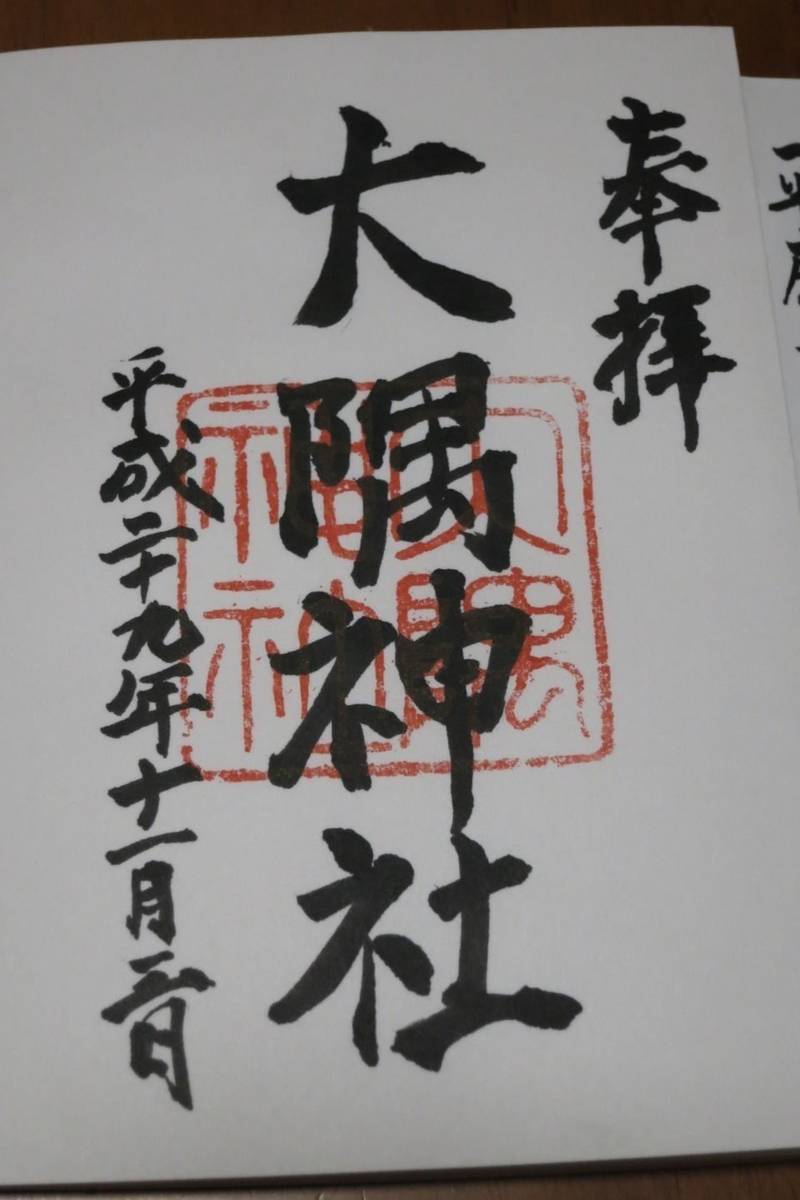 奉拝
大隅神社
大隅神社
平成二十九年十一月三日